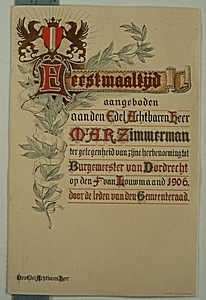 Feestmaaltijd
aangeboden
aan den Edel Achtbaren Heer
Mr A.R. Zimmerman
ter gelegenheid van zijne herbenoeming tot
Burgemeester van Dordrecht
op den 1e van Louwmaand 1906,
door de leden van den Gemeenteraad.
Den Edel Achtbaren Heer